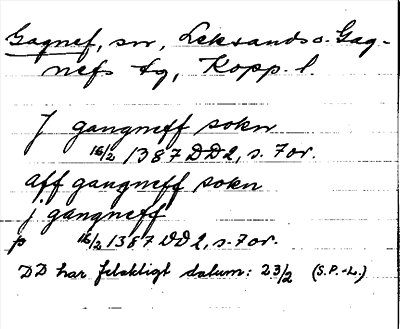 Gagnef, sn, Leksands o. Gag-
nefs tg, Kopp. l.
J gangneff sokn
16/2 1387 DD2, s. 7 or.
aff gangneff sokn
j gangneff
p 16/2 1387 DD2, s. 7 or.
DD har felaktigt datum: 23/2 (S.P.-L.)